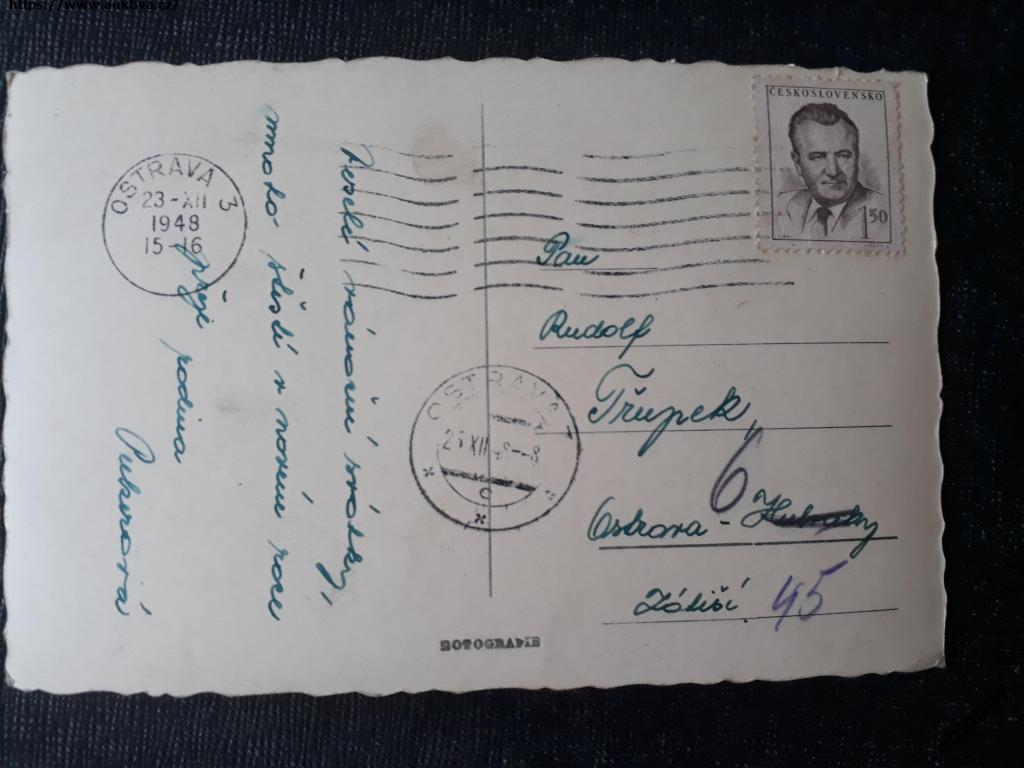 https://www.auktiva.cz/
ČESKOSLOVENSKO
1 50
OSTRAVA 3
23-XII
1948
15-16
Veselé vánoční svátky,
mnoho štěstí v novém roce
přeje rodina
Pan
Rudolf
Třupek,
Ostrava - 6
Zátiší 45
OSTRAVA 7
XII 48--8
C
FOTOGRAFIE